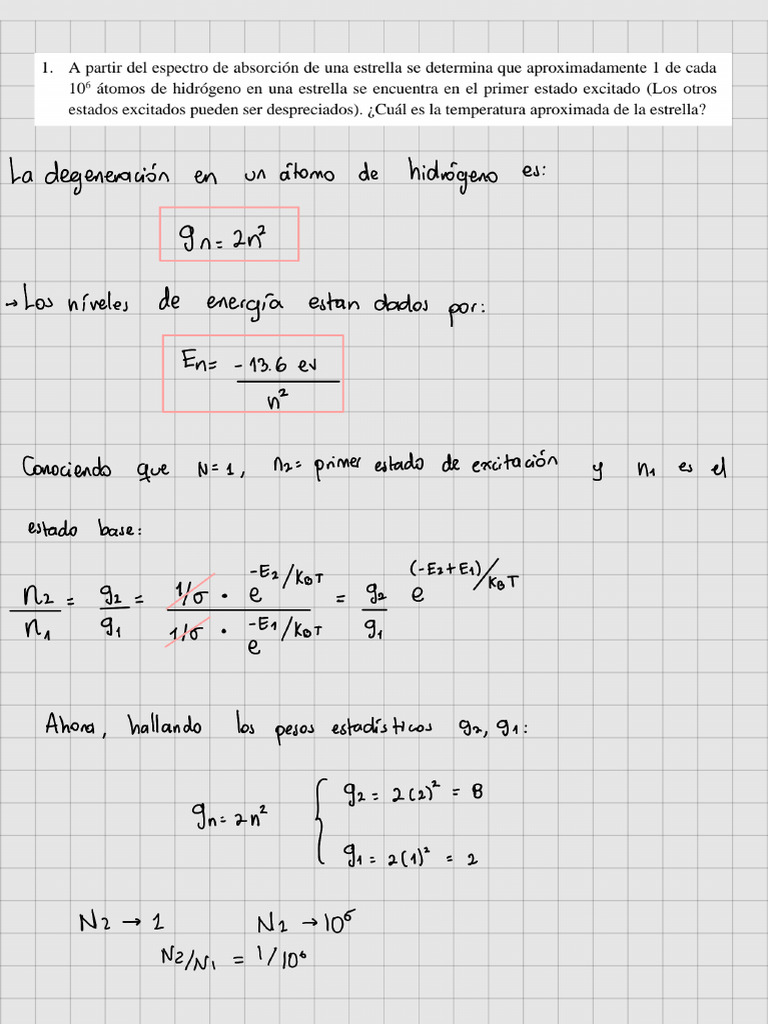 1. A partir del espectro de absorción de una estrella se determina que aproximadamente 1 de cada
10⁶ átomos de hidrógeno en una estrella se encuentra en el primer estado excitado (Los otros
estados excitados pueden ser despreciados). ¿Cuál es la temperatura aproximada de la estrella?
La degeneración en un átomo de hidrógeno es:
gn = 2n²
→ Los níveles de energía estan dados por:
En = -13.6 ev / n²
Conociendo que N=1, n2= primer estado de excitación y n1 es el
estado base:
n2/n1 = g2/g1 = (1/σ · e^(-E2/KBT)) / (1/σ · e^(-E1/KBT)) = g2/g1 e^((-E2+E1)/KBT)
Ahora, hallando los pesos estadísticos g2, g1:
g2 = 2(2)² = 8
gn = 2n²
g1 = 2(1)² = 2
N2 → 1 N1 → 10⁶
N2/N1 = 1/10⁶